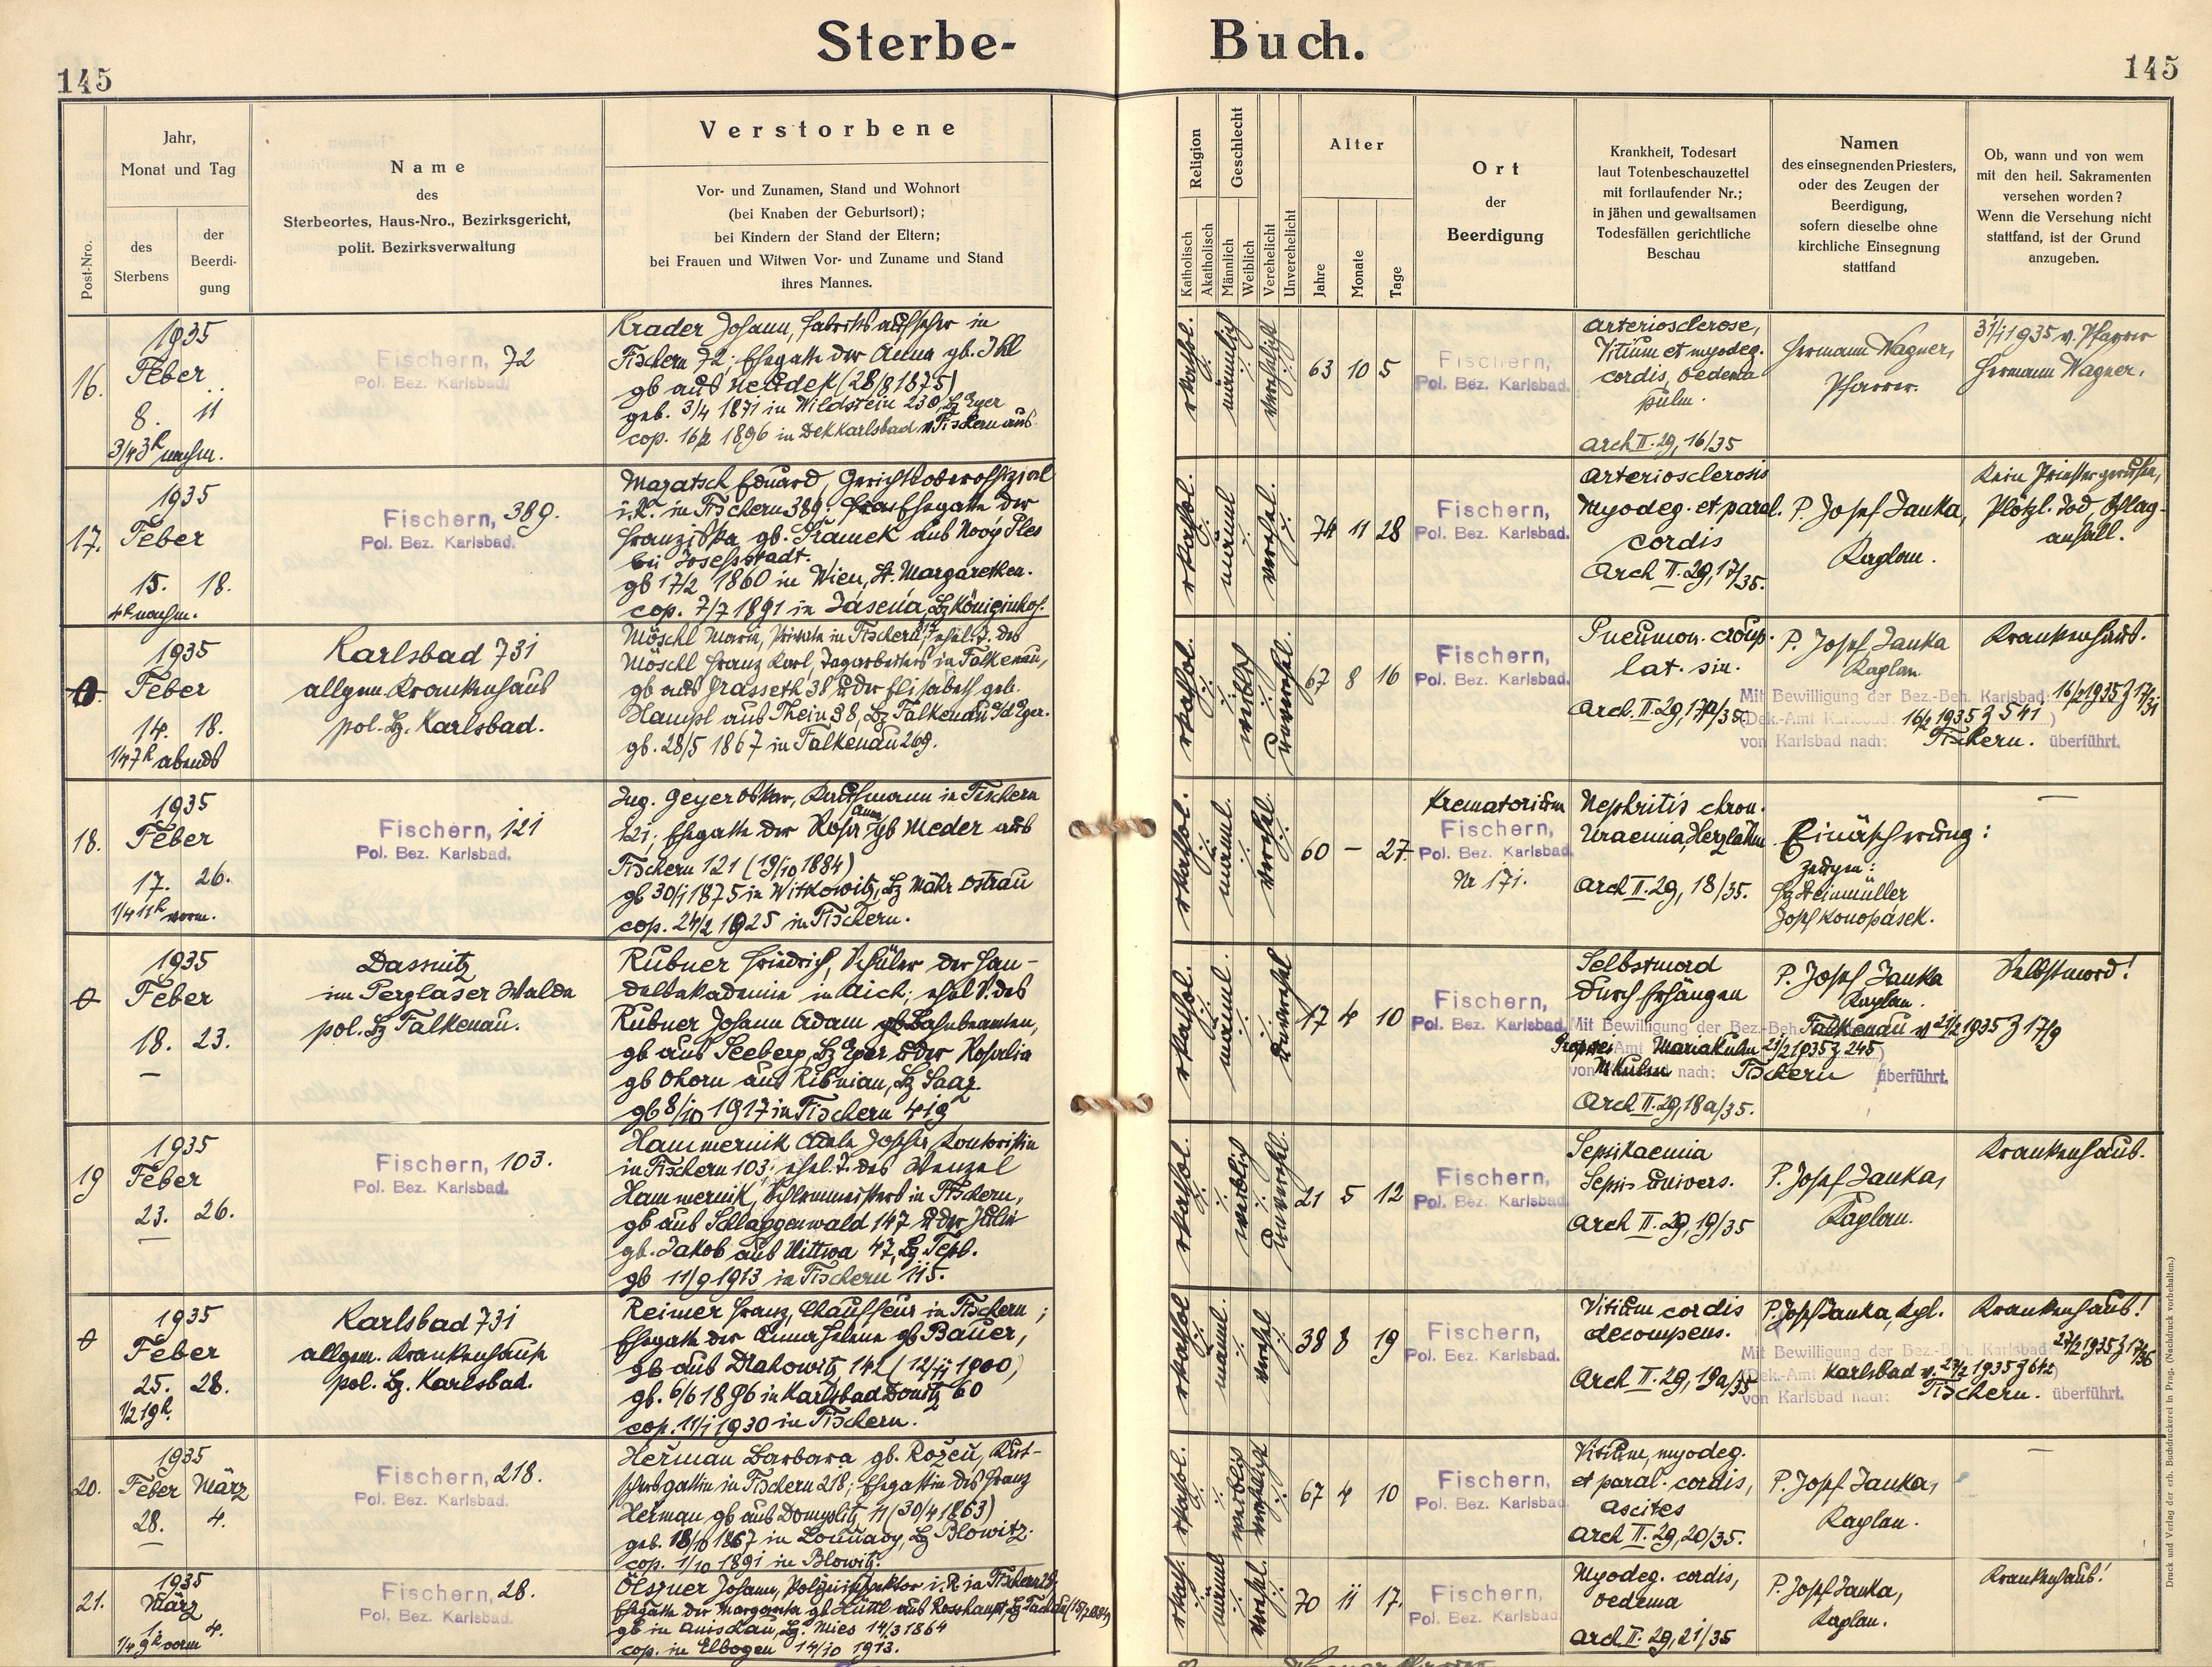 Sterbe- Buch.
145
145
Post-Nro.
Jahr,
Monat und Tag
des
Sterbens
der
Beerdi-
gung
Name
des
Sterbeortes, Haus-Nro., Bezirksgericht,
polit. Bezirksverwaltung
Verstorbene
Vor- und Zunamen, Stand und Wohnort
(bei Knaben der Geburtsort);
bei Kindern der Stand der Eltern;
bei Frauen und Witwen Vor- und Zuname und Stand
ihres Mannes.
Religion
Katholisch
Akatholisch
Geschlecht
Männlich
Weiblich
Verehelicht
Unverehelicht
Alter
Jahre
Monate
Tage
Ort
der
Beerdigung
Krankheit, Todesart
laut Totenbeschauzettel
mit fortlaufender Nr.;
in jähen und gewaltsamen
Todesfällen gerichtliche
Beschau
Namen
des einsegnenden Priesters,
oder des Zeugen der
Beerdigung,
sofern dieselbe ohne
kirchliche Einsegnung
stattfand
Ob, wann und von wem
mit den heil. Sakramenten
versehen worden?
Wenn die Versehung nicht
stattfand, ist der Grund
anzugeben.
16.
1935
Feber
8. 11
3/4 3h nachm.
Fischern, 72
Pol. Bez. Karlsbad.
Krader Johann, Fabriksaufseher in
Fischern 72; Ehegatte der Anna gb. Ihl
gb aus Neudek (28/8 1875)
geb. 3/4 1871 in Wildstein 230, Bz Eger
cop. 16/2 1896 in Dek Karlsbad v. Fischern aus
rkathol.
männlich
verehelicht
63 10 5
Fischern,
Pol. Bez. Karlsbad.
Arteriosclerose,
Vitium et myodeg.
cordis, oedema
pulm.
Arch II. 29, 16/35
Hermann Wagner,
Pfarrer.
31/1 1935 v. Pfarrer
Hermann Wagner.
17.
1935
Feber
15. 18.
4h nachm.
Fischern, 389.
Pol. Bez. Karlsbad.
Mazatsch Eduard, Gerichtsoberoffizial
i.R. in Fischern 389. Ehegatte der
Franziska gb. Sramek aus Nový Ples
bei Josefsstadt.
gb 17/2 1860 in Wien, St. Margarethen.
cop. 7/7 1891 in Jasena, Bz Königinhof.
rkathol.
männl
verehel.
74 11 28
Fischern,
Pol. Bez. Karlsbad.
Arteriosclerosis
Myodeg. et paral.
cordis
Arch II. 29, 17/35.
P. Josef Janka,
Kaplan.
Kein Priester gerufen,
Plötzl. Tod, Schlag-
anfall.
0.
1935
Feber
14. 18.
1/4 7h abends
Karlsbad 731
allgem. Krankenhaus
pol. Bz. Karlsbad.
Möschl Marie, Private in Fischern, ehel. T. des
Möschl Franz Karl, Tagarbeiters in Falkenau,
gb aus Grasseth 38 u der Elisabeth geb.
Hampl aus Thein 38, Bz Falkenau a/d Eger.
gb. 28/5 1867 in Falkenau 269.
rkathol.
weibl
unverehel.
67 8 16
Fischern,
Pol. Bez. Karlsbad.
Pneumon. croup.
lat. sin.
Arch. II. 29, 17a/35
P. Josef Janka
Kaplan.
Krankenhaus.
Mit Bewilligung der Bez.-Beh. Karlsbad: 16/2 1935 Z 17/31
(Dek.-Amt Karlsbad: 16/2 1935 Z 541)
von Karlsbad nach: Fischern. überführt.
18.
1935
Feber
17. 26.
1/4 11h vorm.
Fischern, 121
Pol. Bez. Karlsbad.
Ing. Geyer Oskar, Kaufmann in Fischern
121; Ehegatte der Rosa Anna gb Meder aus
Fischern 121 (19/10 1884)
gb 30/1 1875 in Witkowitz, Bz Mähr Ostrau
cop. 24/2 1925 in Fischern.
rkathol.
männl.
verehel.
60 – 27
Krematorium
Fischern,
Pol. Bez. Karlsbad.
Nr 171.
Nephritis chron.
Uraemia, Herzlähm
Arch II. 29, 18/35.
Einäscherung:
Zeugen:
Steinmüller
Josef Konopásek.
—
0
1935
Feber
18. 23.
—
Dassnitz
im Perglaser Walde
pol. Bz Falkenau.
Rubner Friedrich, Schüler der Han-
delsakademie in Aich; ehel S. des
Rubner Johann Adam Bahnbeamten,
gb aus Seeberg, Bz Eger u der Rosalia
gb Ohorn aus Ribnian, Bz Saaz.
gb 8/10 1917 in Fischern 419
rkathol.
männl.
unverehel
17 4 10
Fischern,
Pol. Bez. Karlsbad.
Selbstmord
durch Erhängen
P. Josef Janka
Kaplan.
Selbstmord!
Mit Bewilligung der Bez.-Beh. Falkenau v 21/2 1935 Z 17/9
Propstei Amt Mariakulm 21/2 1935 Z 245)
von MKulm nach: Fischern überführt.
Arch II. 29, 18a/35.
19
1935
Feber
23. 26.
—
Fischern, 103.
Pol. Bez. Karlsbad.
Hammernik Adele Josefa, Kontoristin
in Fischern 103; ehel. T. des Wenzel
Hammernik, in Fischern,
gb aus Schlaggenwald 147 u der Julie
gb. Jakob aus Uittwa 47, Bz. Tepl.
gb 11/9 1913 in Fischern 115.
rkathol.
weiblich
unverehl.
21 5 12
Fischern,
Pol. Bez. Karlsbad.
Septikaemia
Sepsis univers.
Arch II. 29, 19/35
P. Josef Janka,
Kaplan.
Krankenhaus.
0
1935
Feber
25. 28.
1/2 19h.
Karlsbad 731
allgem. Krankenhaus
pol. Bz. Karlsbad.
Reimer Franz, Chauffeur in Fischern;
Ehegatte der Anna Helene gb Bauer,
gb aus Drahowitz 142 (12/11 1900)
gb. 6/6 1896 in Karlsbad Donitz 60
cop. 11/1 1930 in Fischern.
rkathol
männl.
verehel
38 8 19
Fischern,
Pol. Bez. Karlsbad.
Vitium cordis
decompens.
Arch II. 29, 19a/35
P. Josef Janka, Kpl.
Krankenhaus!
Mit Bewilligung der Bez.-Beh. Karlsbad: 27/2 1935 Z 17/36
(Dek.-Amt Karlsbad v. 27/2 1935 Z 642)
von Karlsbad nach: Fischern. überführt.
20.
1935
Feber März
28. 4.
—
Fischern, 218.
Pol. Bez. Karlsbad.
Herman Barbara gb. Rozeu, Kut-
schersgattin in Fischern 218; Ehegattin des Franz
Herman gb aus Domyslitz 11 (30/4 1863)
geb. 18/10 1867 in Louňacy, Bz Blowitz.
cop. 1/10 1891 in Blowitz.
rkathol.
weiblich
verehelicht
67 4 10
Fischern,
Pol. Bez. Karlsbad.
Vitium, myodeg.
et paral. cordis,
Ascites
Arch II. 29, 20/35.
P. Josef Janka,
Kaplan.
—
21.
1935
März
1. 4.
1/4 9h vorm
Fischern, 28.
Pol. Bez. Karlsbad.
Ölszner Johann, Polizeiinspektor i. R. in Fischern 28,
Ehegatte der Margaretha gb Hüttl aus Rosshaupt, Bz Tachau
gb in Anischau, Bz. Mies 14/3 1864
cop. in Elbogen 14/10 1913.
rkath.
männl
verehel.
70 11 17.
Fischern,
Pol. Bez. Karlsbad.
Myodeg. cordis,
oedema
Arch II. 29, 21/35
P. Josef Janka,
Kaplan.
Krankenhaus!
Druck und Verlag der erb. Buchdruckerei in Prag. (Nachdruck vorbehalten.)